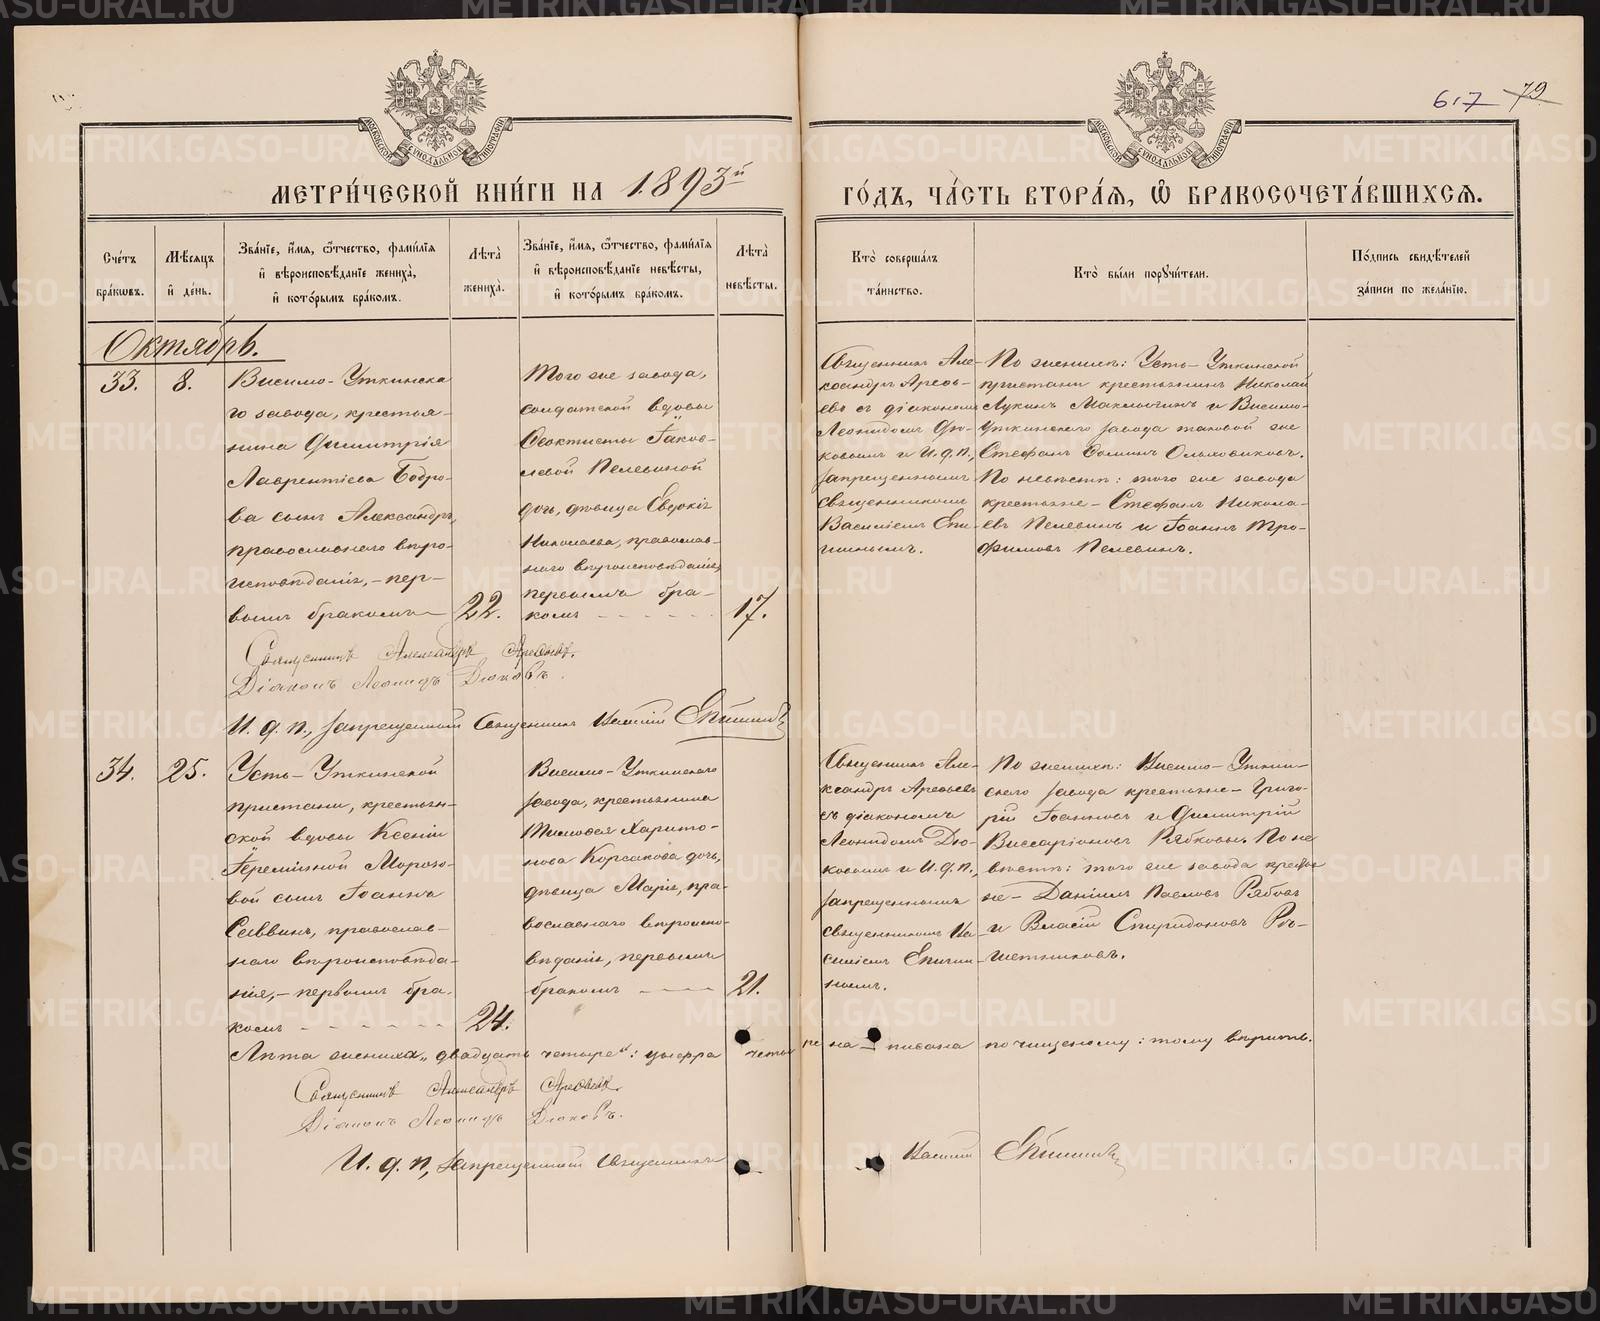 617 79
МОСКОВСКОЙ СѴНОДАЛЬНОЙ ТИПОГРАФІИ
МОСКОВСКОЙ СѴНОДАЛЬНОЙ ТИПОГРАФІИ
МЕТРИ́ЧЕСКОЙ КНИ́ГИ НА 1893й
ГО́ДЪ, ЧА́СТЬ ВТОРА́Я, Ѿ БРАКОСОЧЕТА́ВШИХСЯ.
Сче́тъ бра́кѡвъ.
Мѣ́сяцъ и҆ де́нь.
Зва́нїе, и҆́мя, ѻ҆́тчество, фами́лїя и҆ вѣроисповѣ́данїе жениха̀, и҆ кото́рымъ бра́комъ.
Лѣ́та жениха̀.
Зва́нїе, и҆́мя, ѻ҆́тчество, фами́лїя и҆ вѣроисповѣ́данїе невѣ́сты, и҆ кото́рымъ бра́комъ.
Лѣ́та невѣ́сты.
Кто̀ соверша́лъ та́инство.
Кто̀ бы́ли поручи́тели.
По́дпись свидѣ́телей за́писи по жела́нїю.
Октябрь.
33.
8.
Висимо-Уткинска
го завода, крестья-
нина Димитрія
Лаврентіева Бобро-
ва сынъ Александръ,
православнаго вѣро-
исповѣданія, - пер-
вымъ бракомъ
22.
Того же завода,
солдатской вдовы
Ѳеоктисты Іаков-
левой Пелевиной
дочь, дѣвица Евдокія
Николаева, православ-
наго вѣроисповѣданія,
первымъ бра-
комъ
17.
Священникъ Але-
ксандръ Арефь-
евъ съ діакономъ
Леонидомъ Дю-
ковымъ и И. д. п.,
запрещеннымъ
священникомъ
Василіемъ Епи-
шинымъ.
По женихѣ: Усть-Уткинской
пристани крестьянинъ Николай
Лукинъ и Висимо-
Уткинскаго завода таковой же
Стефанъ Ѳоминъ Ольховиковъ.
По невѣстѣ: того же завода
крестьяне - Стефанъ Никола-
евъ Пелевинъ и Іоаннъ Тро-
фимовъ Пелевинъ.
Священникъ Александръ Арефьевъ.
Діаконъ Леонидъ Дюковъ.
И. д. п., запрещенный Священникъ Василій Епишинъ
34.
25.
Усть-Уткинской
пристани, крестьян-
ской вдовы Ксеніи
Іереміиной Морозо-
вой сынъ Іоаннъ
Саввинъ, православ-
наго вѣроисповѣда-
нія, - первымъ бра-
комъ
24.
Висимо-Уткинскаго
завода, крестьянина
Тимоѳея Харито-
нова Корсакова дочь,
дѣвица Марія, пра-
вославнаго вѣроиспо-
вѣданія, первымъ
бракомъ
21.
Священникъ Але-
ксандръ Арефьевъ
съ діакономъ
Леонидомъ Дю-
ковымъ и И. д. п.,
запрещеннымъ
священникомъ Ва-
силіемъ Епиши-
нымъ.
По женихѣ: Висимо-Уткин-
скаго завода крестьяне - Григо-
рій Іоанновъ и Димитрій
Виссаріоновъ Рябковы. По не-
вѣстѣ: того же завода крестья-
не - Даніилъ Павловъ Рябовъ
и Власій Спиридоновъ Рѣ-
шетниковъ.
Лѣта жениха „двадцать четыре“: цыфра четыре написана по чищеному: тому вѣрить.
Священникъ Александръ Арефьевъ.
Діаконъ Леонидъ Дюковъ.
И. д. п., запрещенный Священникъ Василій Епишинъ
METRIKI.GASO-URAL.RU